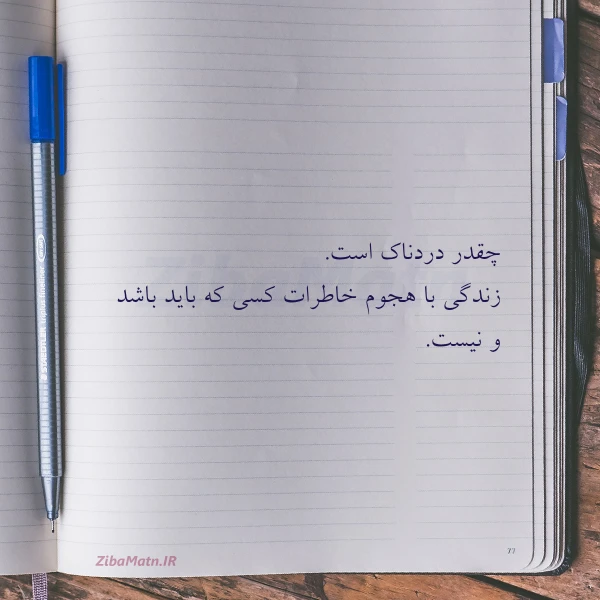 چقدر دردناک است.
زندگی با هجوم خاطرات کسی که باید باشد
و نیست.
ZibaMatn.IR